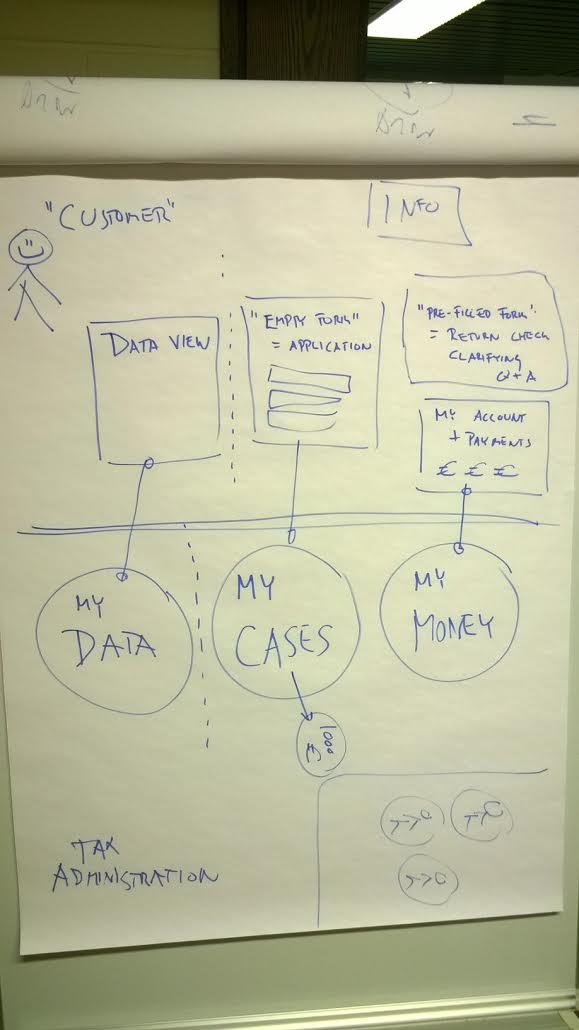 "CUSTOMER"
INFO
DATA VIEW
"EMPTY FORM"
= APPLICATION
"PRE-FILLED FORM"
= RETURN CHECK
CLARIFYING
Q + A
MY ACCOUNT
+ PAYMENTS
€ € €
MY
DATA
MY
CASES
MY
MONEY
1000
€
TAX
ADMINISTRATION